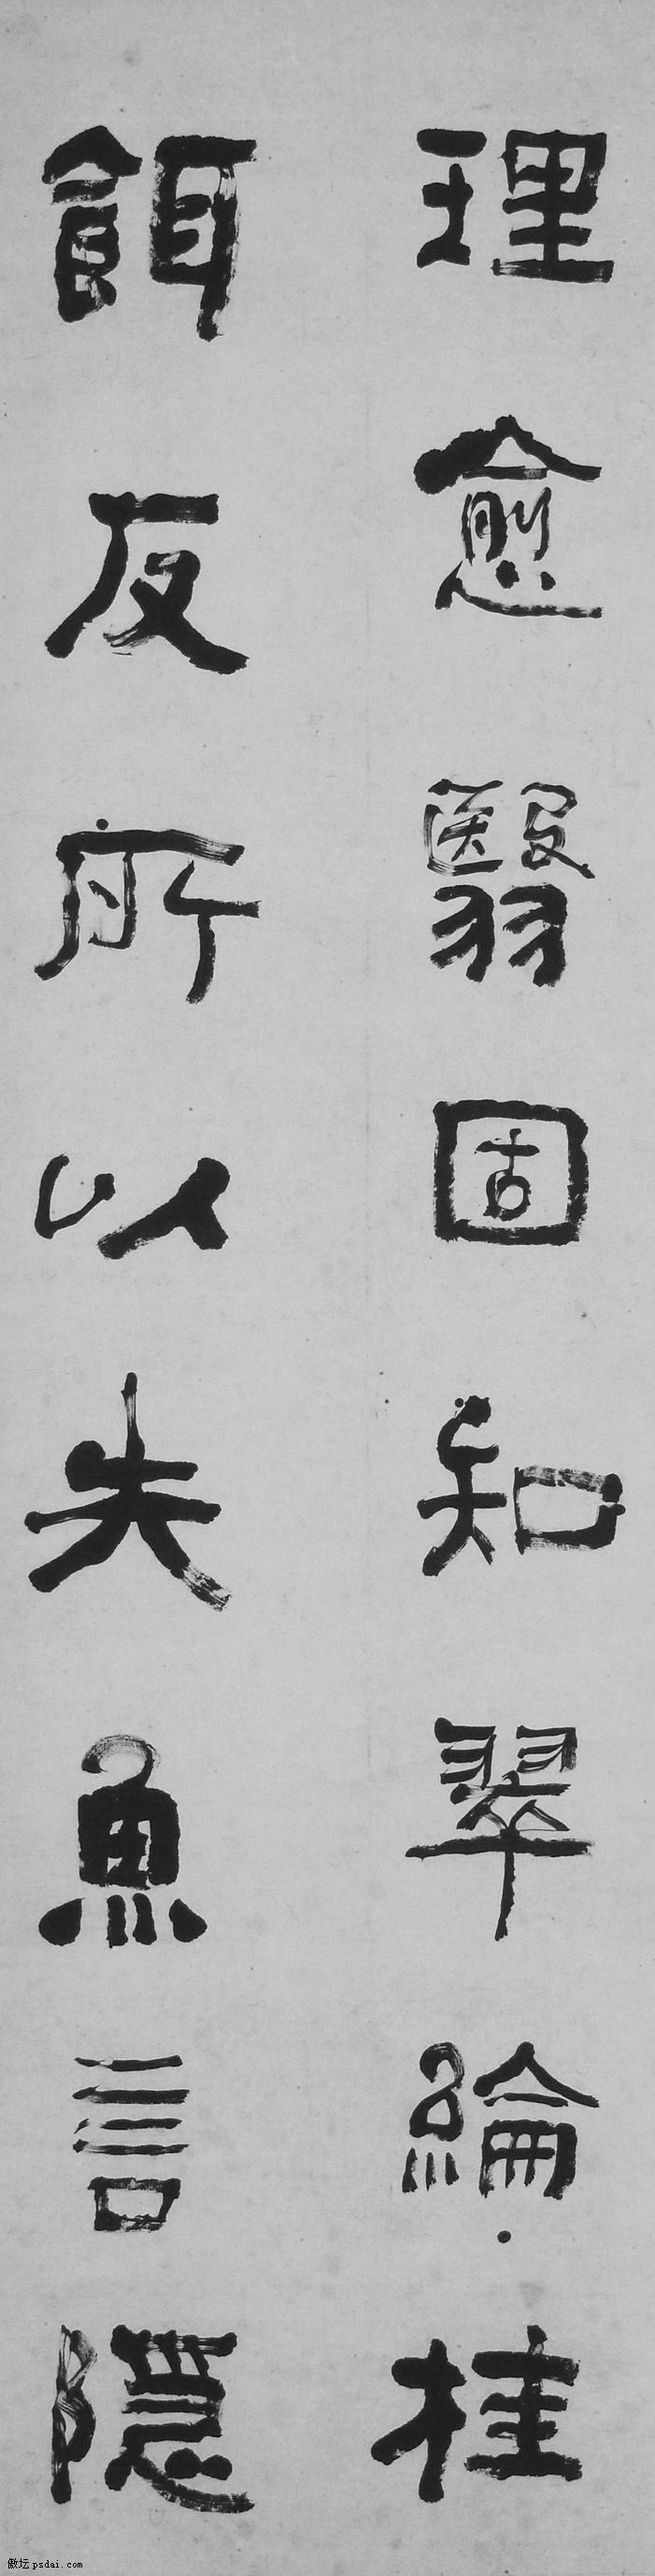 理愈翳固知翠綸桂
餌反所以失魚言隱
傲坛 psdai.com